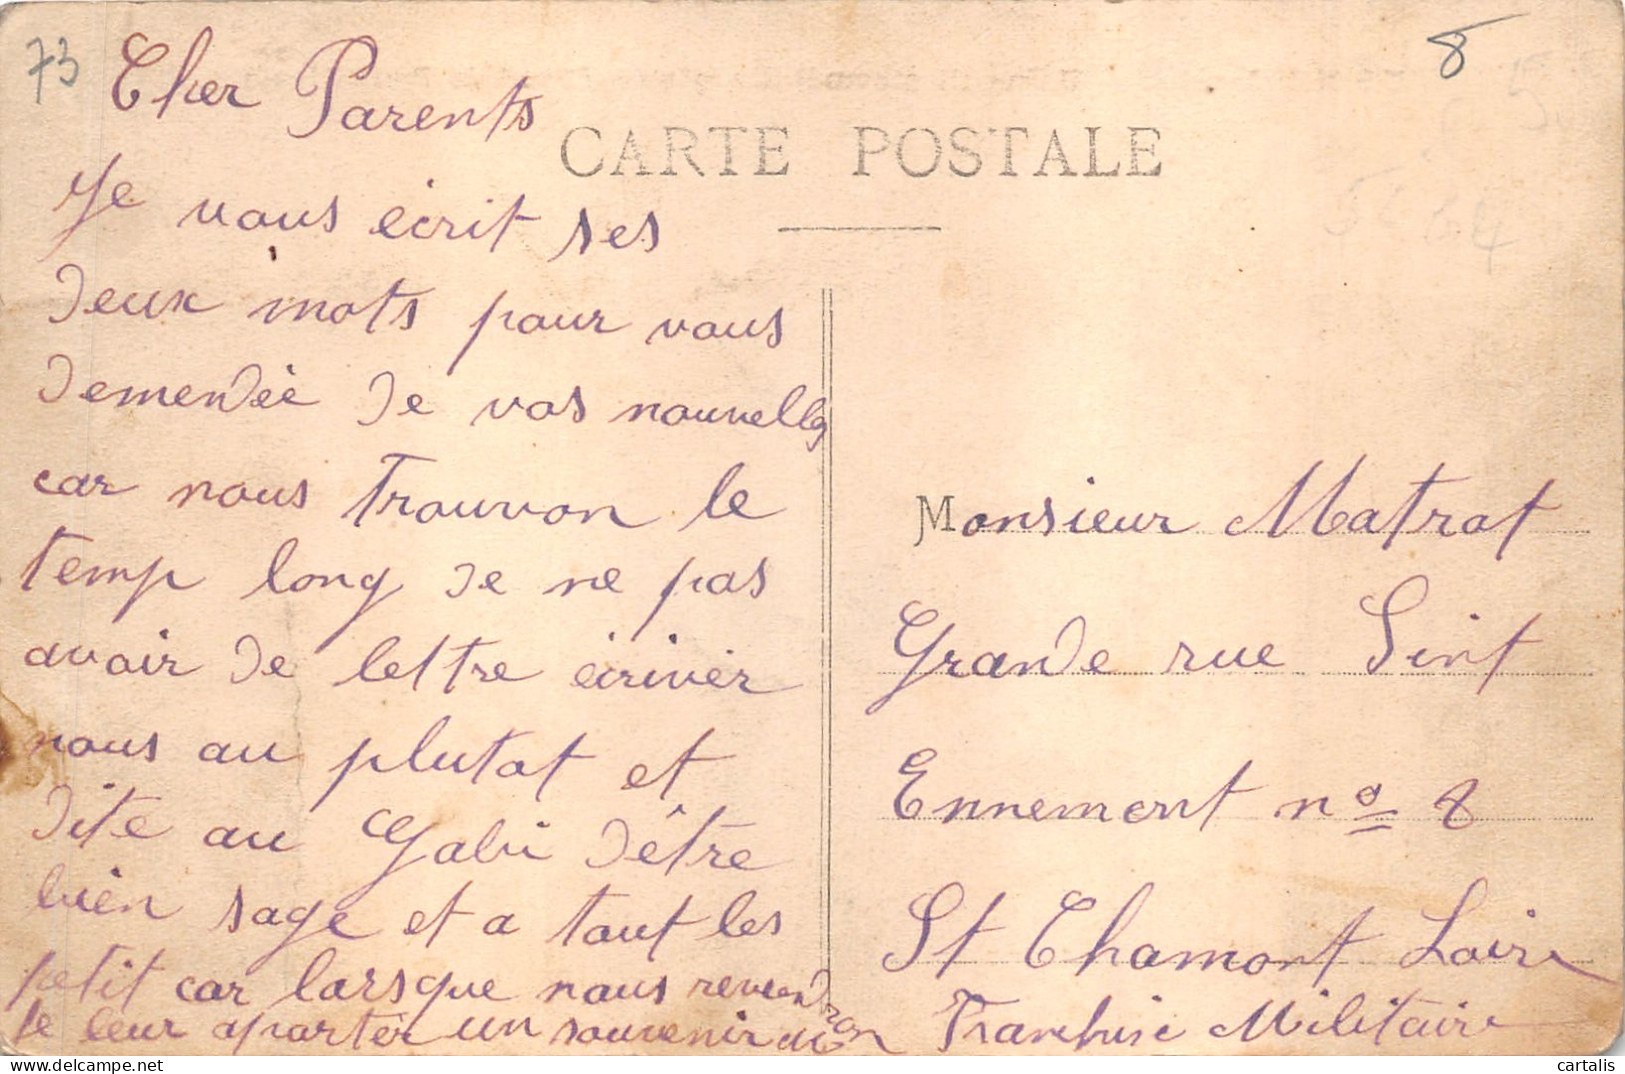 73
8
Cher Parents
CARTE POSTALE
Je vous ècrit ses
deux mots pour vous
demendèe de vos nouvelles
car nous trouvon le
temp long de ne pas
avoir de lettre ècrivèr
nous au plutot et
dite au Gabi d'être
bien sage et a tout les
petit car larsque nous revendron
le leur aportèr un souvenir
Monsieur Matrat
Grande rue Sint
Ennement nº 8
St Chamont Loire
Franchise Militaire
cartalis